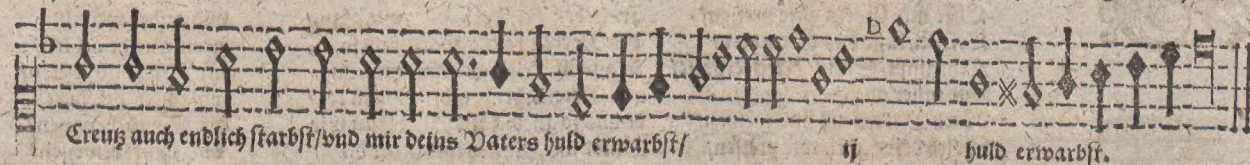 Creutz auch endlich starbst/vnd mir deins Vaters huld erwarbst/ ij huld erwarbst.